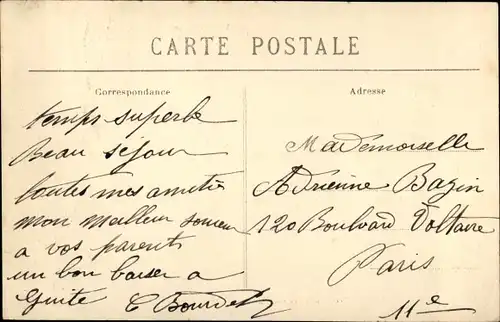 CARTE POSTALE
Correspondance
Adresse
temps superbe
Beau séjour
toutes mes amitiés
mon meilleur
a vos parents
un bon baiser a
Guite
Mademoiselle
Adrienne Bazin
120 Boulvard Voltaire
Paris
11e